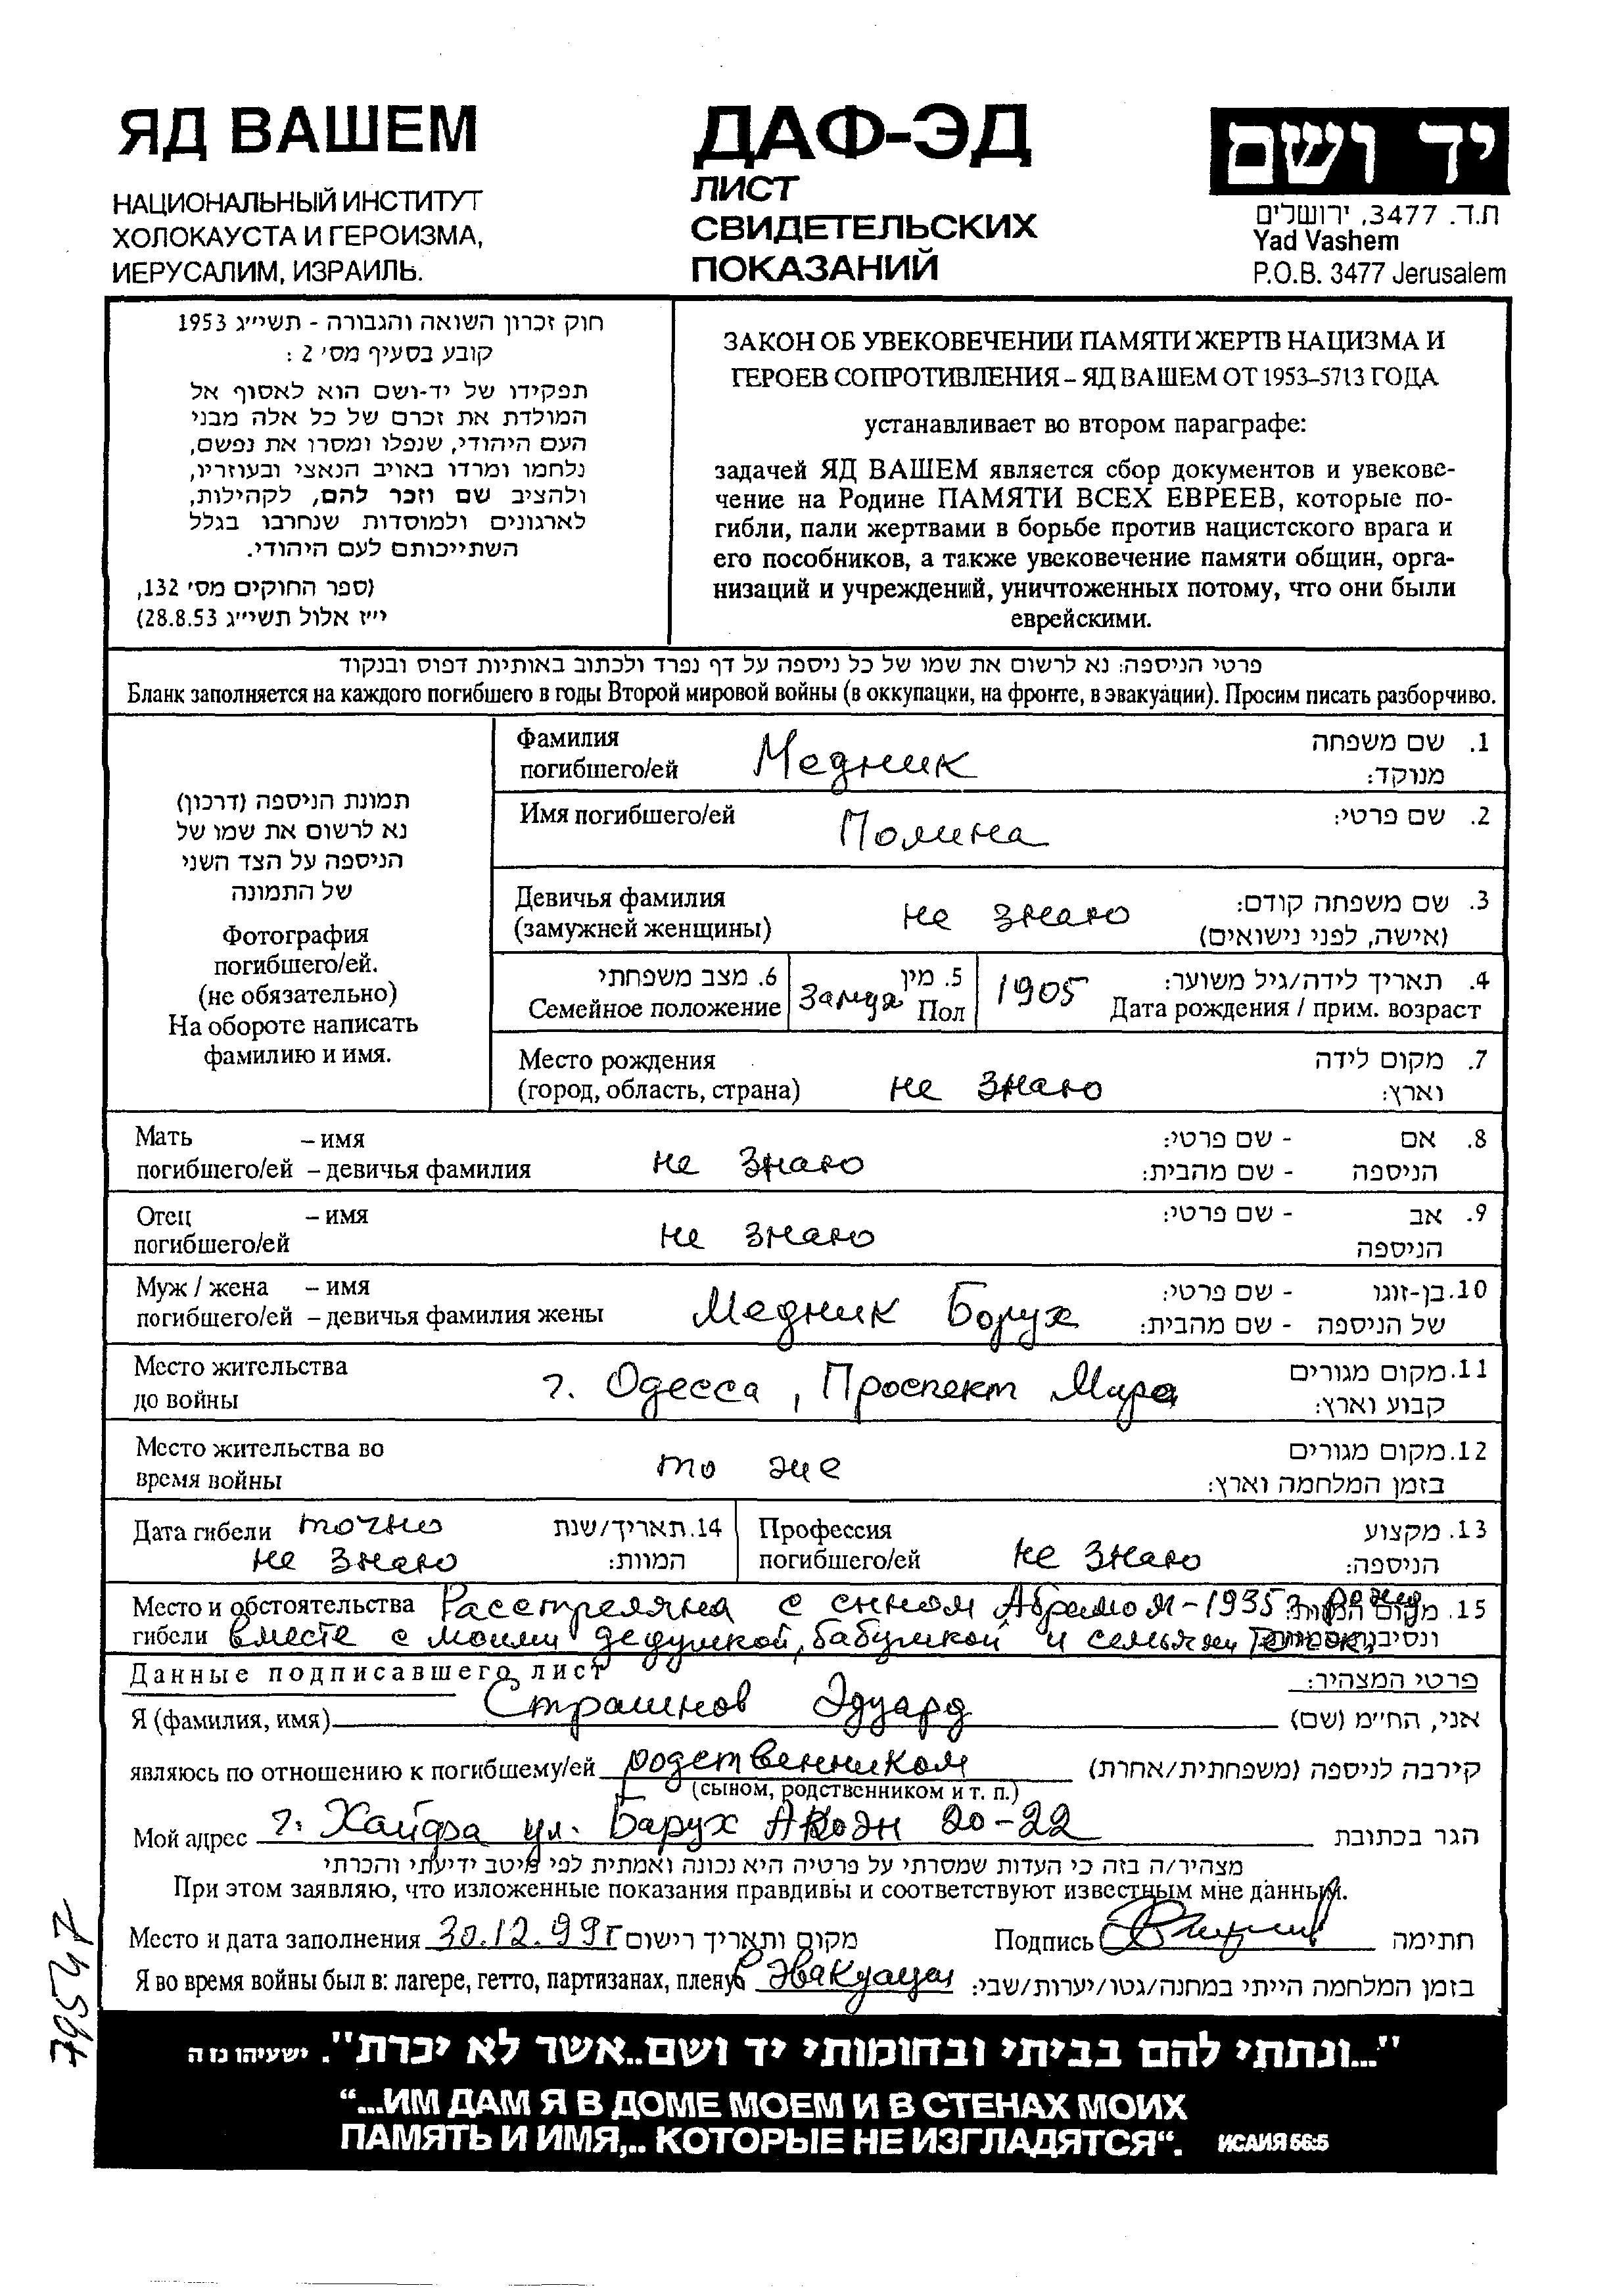 ЯД ВАШЕМ
НАЦИОНАЛЬНЫЙ ИНСТИТУТ
ХОЛОКАУСТА И ГЕРОИЗМА,
ИЕРУСАЛИМ, ИЗРАИЛЬ.
ДАФ-ЭД
ЛИСТ
СВИДЕТЕЛЬСКИХ
ПОКАЗАНИЙ
יד ושם
ת.ד. 3477, ירושלים
Yad Vashem
P.O.B. 3477 Jerusalem
חוק זכרון השואה והגבורה - תשי״ג 1953
קובע בסעיף מס׳ 2 :
תפקידו של יד-ושם הוא לאסוף אל
המולדת את זכרם של כל אלה מבני
העם היהודי, שנפלו ומסרו את נפשם,
נלחמו ומרדו באויב הנאצי ובעוזריו,
ולהציב שם וזכר להם, לקהילות,
לארגונים ולמוסדות שנחרבו בגלל
השתייכותם לעם היהודי.
(ספר החוקים מס׳ 132,
י״ז אלול תשי״ג 28.8.53)
ЗАКОН ОБ УВЕКОВЕЧЕНИИ ПАМЯТИ ЖЕРТВ НАЦИЗМА И
ГЕРОЕВ СОПРОТИВЛЕНИЯ – ЯД ВАШЕМ ОТ 1953–5713 ГОДА
устанавливает во втором параграфе:
задачей ЯД ВАШЕМ является сбор документов и увекове-
чение на Родине ПАМЯТИ ВСЕХ ЕВРЕЕВ, которые по-
гибли, пали жертвами в борьбе против нацистского врага и
его пособников, а также увековечение памяти общин, орга-
низаций и учреждений, уничтоженных потому, что они были
еврейскими.
פרטי הניספה: נא לרשום את שמו של כל ניספה על דף נפרד ולכתוב באותיות דפוס ובנקוד
Бланк заполняется на каждого погибшего в годы Второй мировой войны (в оккупации, на фронте, в эвакуации). Просим писать разборчиво.
תמונת הניספה (דרכון)
נא לרשום את שמו של
הניספה על הצד השני
של התמונה
Фотография
погибшего/ей.
(не обязательно)
На обороте написать
фамилию и имя.
Фамилия 1. שם משפחה
погибшего/ей Медник מנוקד:
Имя погибшего/ей Полина 2. שם פרטי:
Девичья фамилия 3. שם משפחה קודם:
(замужней женщины) не знаю (אישה, לפני נישואים)
6. מצב משפחתי 5. מין 4. תאריך לידה/גיל משוער:
Семейное положение замуж Пол 1905 Дата рождения / прим. возраст
Место рождения 7. מקום לידה
(город, область, страна) не знаю וארץ:
Мать – имя 8. אם - שם פרטי:
погибшего/ей – девичья фамилия не знаю הניספה - שם מהבית:
Отец – имя 9. אב - שם פרטי:
погибшего/ей не знаю הניספה
Муж / жена – имя 10. בן-זוגו - שם פרטי:
погибшего/ей – девичья фамилия жены Медник Борух של הניספה - שם מהבית:
Место жительства 11. מקום מגורים
до войны г. Одесса, Проспект Мира קבוע וארץ:
Место жительства во 12. מקום מגורים
время войны то же בזמן המלחמה וארץ:
Дата гибели точно 14. תאריך/שנת Профессия 13. מקצוע
не знаю המוות: погибшего/ей не знаю הניספה:
Место и обстоятельства Расстреляна с сыном Абрамом - 1935 г. рожд 15. מקום המוות:
гибели вместе с моими дедушкой, бабушкой и семьями
Данные подписавшего лист פרטי המצהיר:
Я (фамилия, имя) Страшнов Эдуард אני, הח״מ (שם)
являюсь по отношению к погибшему/ей родственником קירבה לניספה (משפחתית/אחרת)
(сыном, родственником и т. п.)
Мой адрес г. Хайфа ул. Барух 20-22 הגר בכתובת
מצהיר/ה בזה כי העדות שמסרתי על פרטיה היא נכונה ואמתית לפי מיטב ידיעתי והכרתי
При этом заявляю, что изложенные показания правдивы и соответствуют известным мне данным.
Место и дата заполнения 30.12.99г מקום ותאריך רישום Подпись חתימה
Я во время войны был в: лагере, гетто, партизанах, плену в эвакуации בזמן המלחמה הייתי במחנה/גטו/יערות/שבי:
79547
"...ונתתי להם בביתי ובחומותי יד ושם..אשר לא יכרת". ישעיהו נו ה
“...ИМ ДАМ Я В ДОМЕ МОЕМ И В СТЕНАХ МОИХ
ПАМЯТЬ И ИМЯ,.. КОТОРЫЕ НЕ ИЗГЛАДЯТСЯ“. ИСАИЯ 56:5